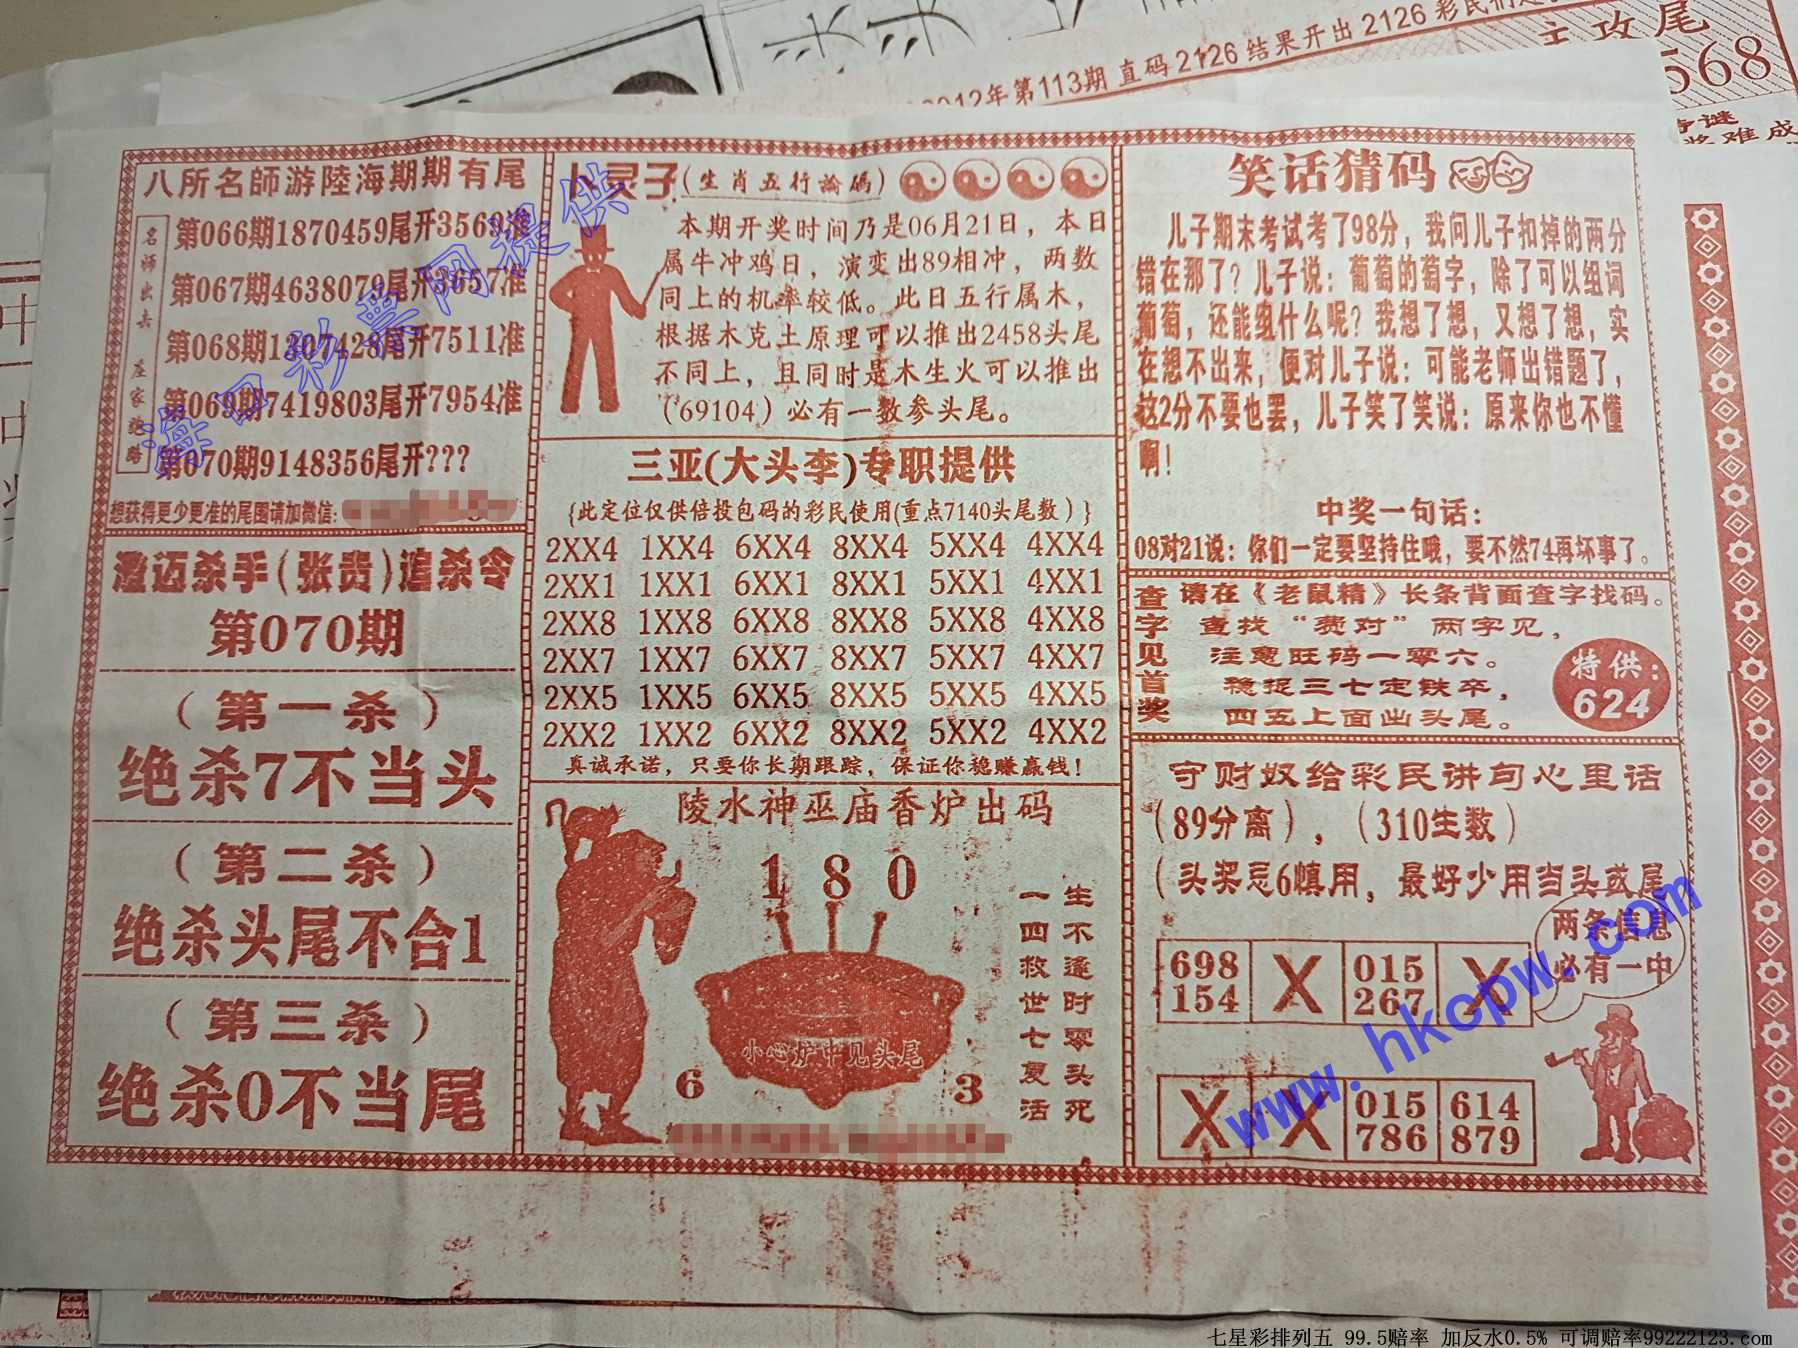 2012年第113期 直码2126 结果开出 2126
主攻尾
568
八所名師游陸海期期有尾
名师出去 庄家绝路
第066期1870459尾开3569准
第067期4638079尾开3657准
第068期1307428尾开7511准
第069期7419803尾开7954准
第070期9148356尾开???
想获得更少更准的尾图请加微信:
澄迈杀手(张贵)追杀令
第070期
(第一杀)
绝杀7不当头
(第二杀)
绝杀头尾不合1
(第三杀)
绝杀0不当尾
灵子(生肖五行論碼)
本期开奖时间乃是06月21日，本日
属牛冲鸡日，演变出89相冲，两数
同上的机率较低。此日五行属木，
根据木克土原理可以推出2458头尾
不同上，且同时是木生火可以推出
(69104)必有一数参头尾。
三亚(大头李)专职提供
{此定位仅供倍投包码的彩民使用(重点7140头尾数)}
2XX4 1XX4 6XX4 8XX4 5XX4 4XX4
2XX1 1XX1 6XX1 8XX1 5XX1 4XX1
2XX8 1XX8 6XX8 8XX8 5XX8 4XX8
2XX7 1XX7 6XX7 8XX7 5XX7 4XX7
2XX5 1XX5 6XX5 8XX5 5XX5 4XX5
2XX2 1XX2 6XX2 8XX2 5XX2 4XX2
真诚承诺，只要你长期跟踪，保证你稳赚赢钱!
陵水神巫庙香炉出码
180
生不逢时零头死
一四救世七复活
小心炉中见头尾
6 3
笑话猜码
儿子期末考试考了98分，我问儿子扣掉的两分
错在那了？儿子说：葡萄的萄字，除了可以组词
葡萄，还能组什么呢？我想了想，又想了想，实
在想不出来，便对儿子说：可能老师出错题了，
这2分不要也罢，儿子笑了笑说：原来你也不懂
啊！
中奖一句话：
08对21说：你们一定要坚持住哦，要不然74再坏事了。
查字见首奖
请在《老鼠精》长条背面查字找码。
查找“费对”两字见，
注意旺码一零六。
稳捉三七定铁卒，
四五上面出头尾。
特供：
624
守财奴给彩民讲句心里话
(89分离)，(310生数)
(头奖忌6慎用，最好少用当头或尾
两条信息
必有一中
698 X 015 X
154 267
X X 015 614
786 879
海口彩票网提供
www.hkcpw.com
七星彩排列五 99.5赔率 加反水0.5% 可调赔率99222123.com